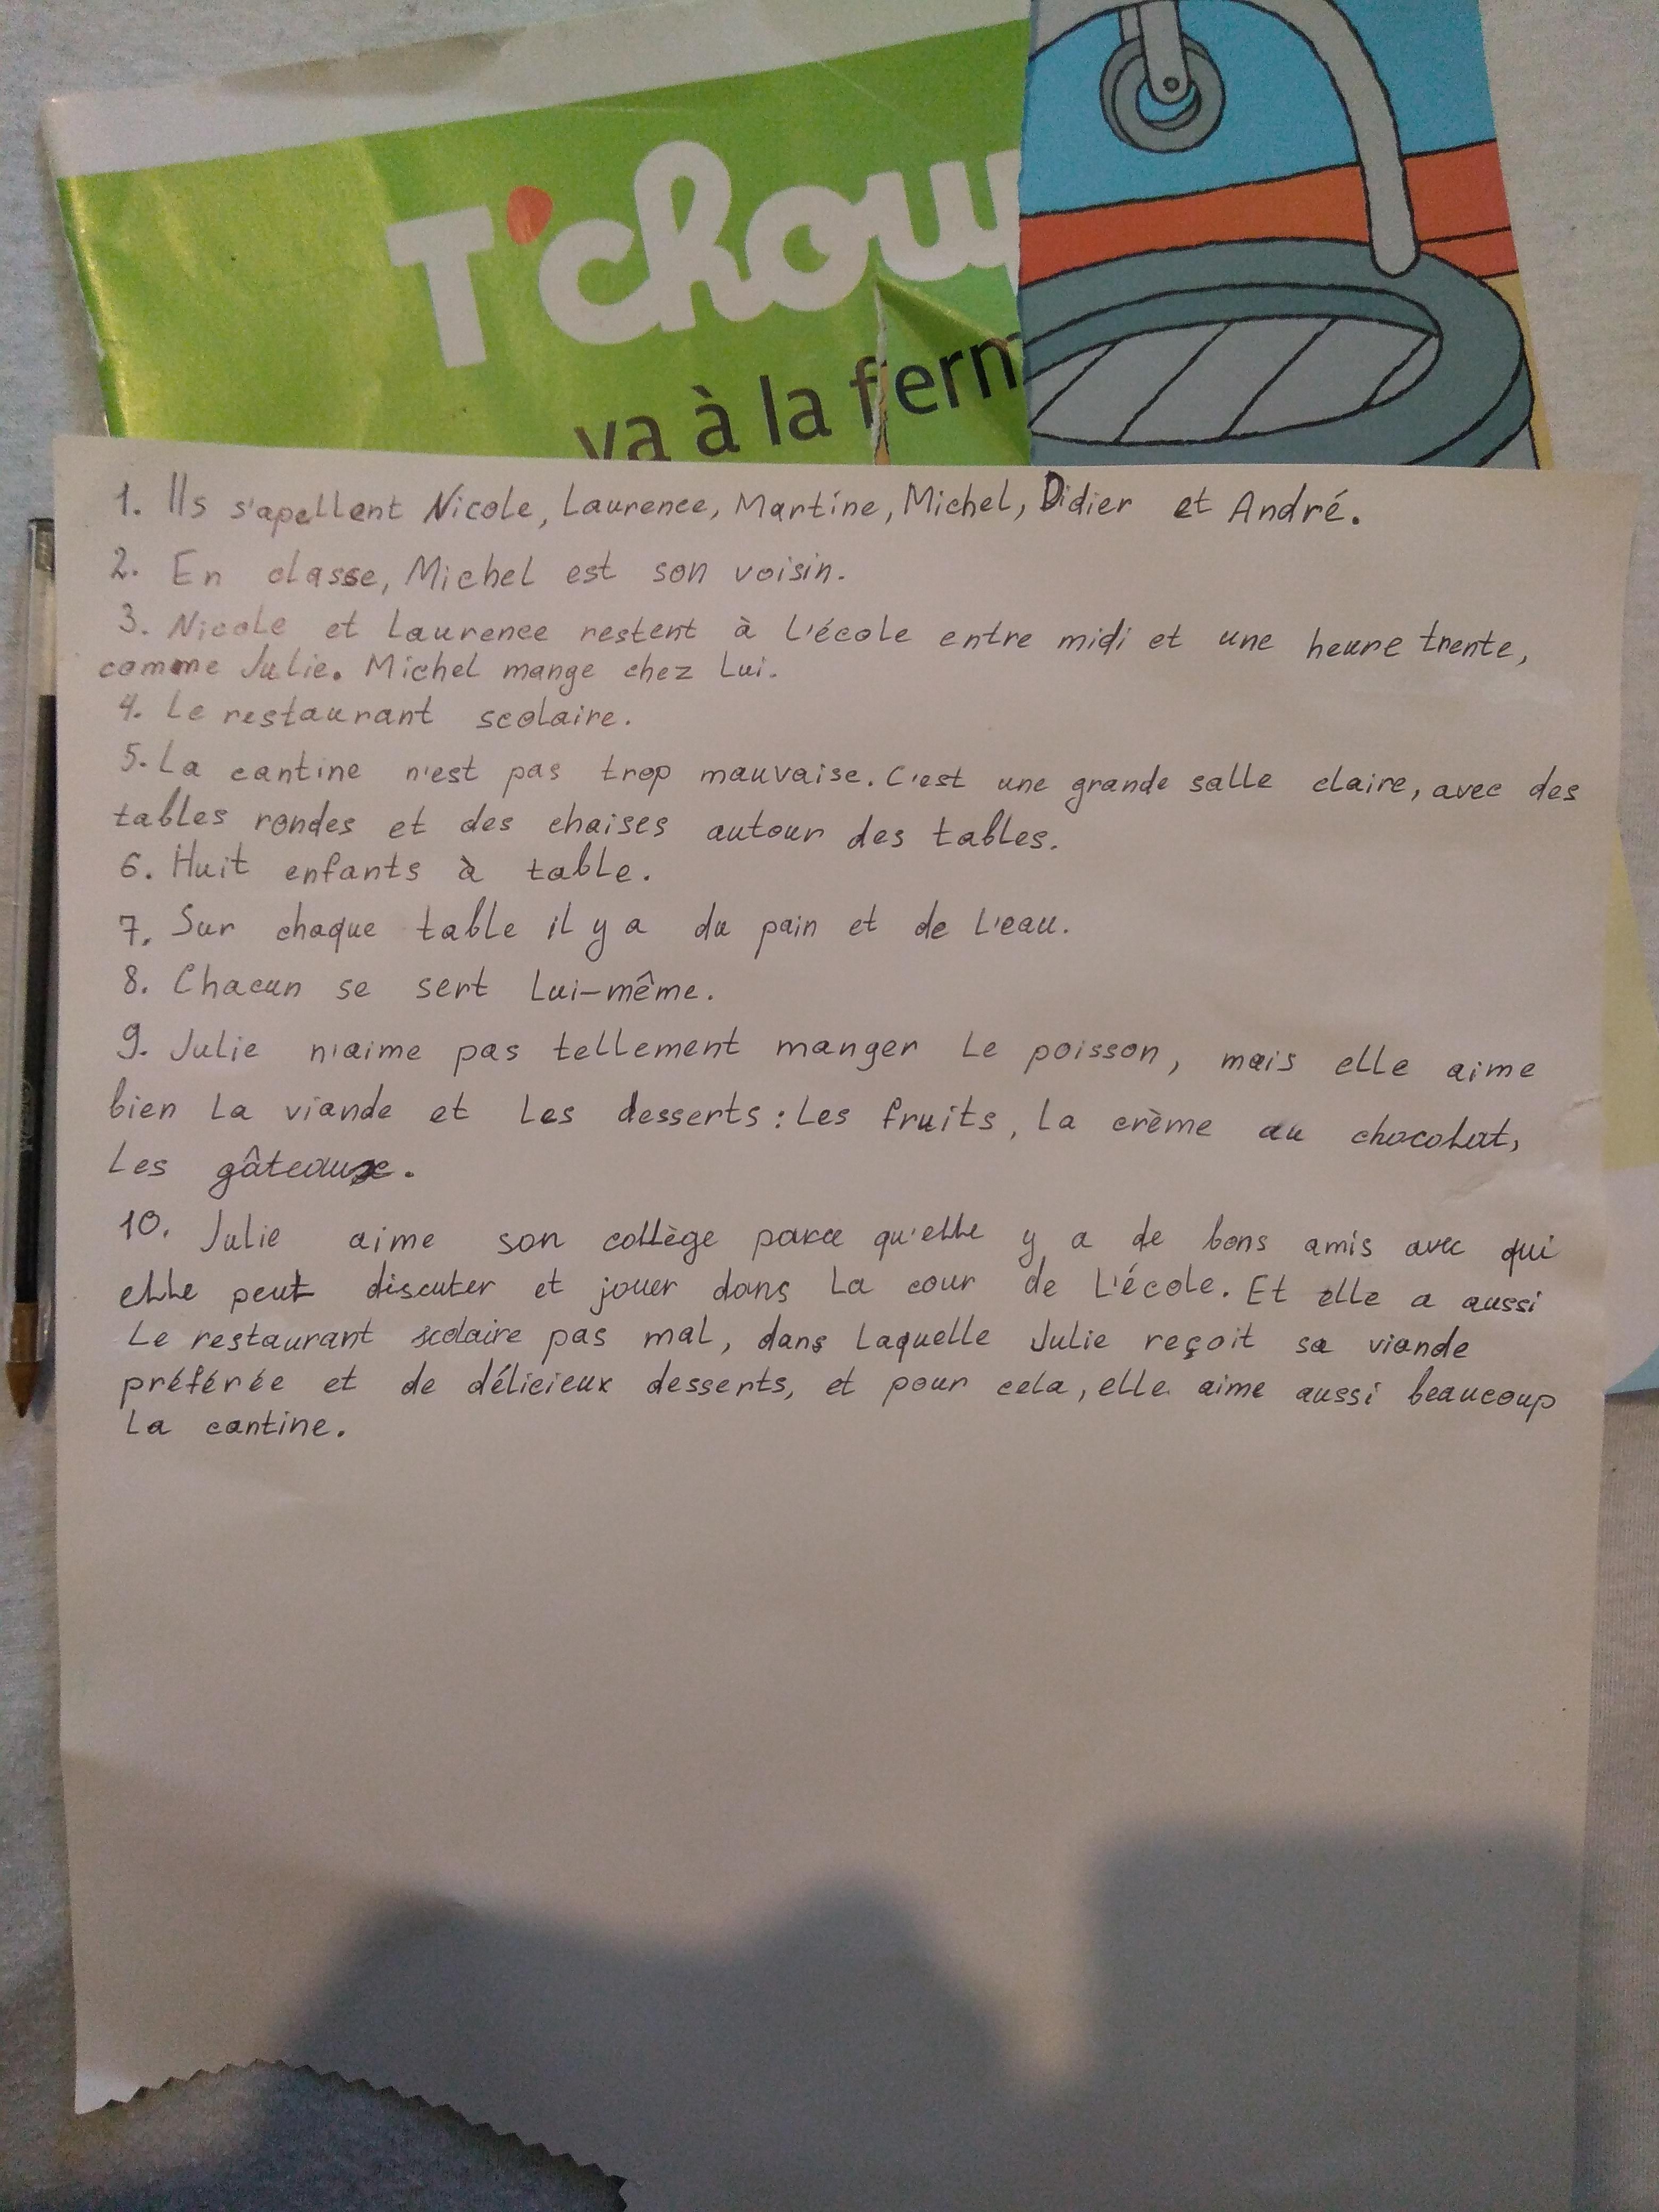 T'chou
va à la ferm
1. Ils s'apellent Nicole, Laurence, Martine, Michel, Didier et André.
2. En classe, Michel est son voisin.
3. Nicole et Laurence restent à l'école entre midi et une heure trente,
comme Julie. Michel mange chez lui.
4. Le restaurant scolaire.
5. La cantine n'est pas trop mauvaise. C'est une grande salle claire, avec des
tables rondes et des chaises autour des tables.
6. Huit enfants à table.
7. Sur chaque table il y a du pain et de l'eau.
8. Chacun se sert lui-même.
9. Julie n'aime pas tellement manger le poisson, mais elle aime
bien la viande et les desserts: les fruits, la crème au chocolat,
les gâteaux.
10. Julie aime son collège parce qu'elle y a de bons amis avec qui
elle peut discuter et jouer dans la cour de l'école. Et elle a aussi
le restaurant scolaire pas mal, dans laquelle Julie reçoit sa viande
préférée et de délicieux desserts, et pour cela, elle aime aussi beaucoup
la cantine.